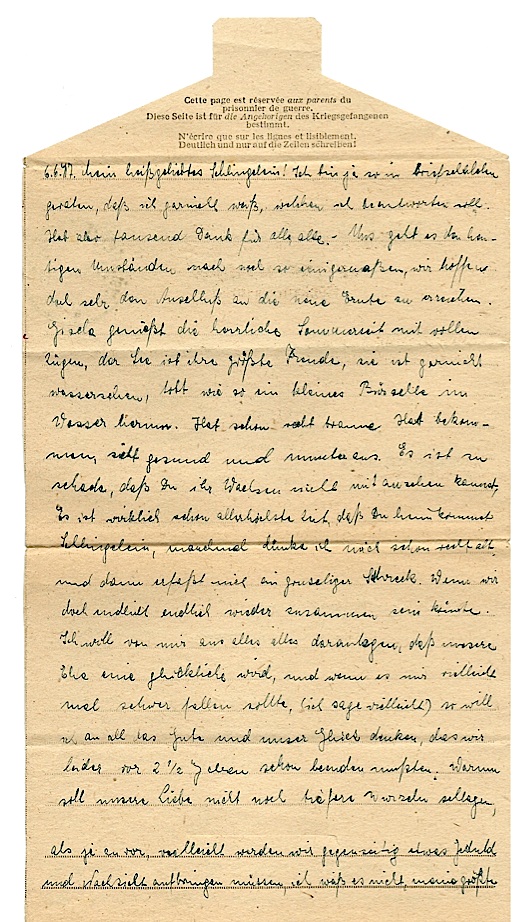 Cette page est réservée aux parents du
prisonnier de guerre.
Diese Seite ist für die Angehörigen des Kriegsgefangenen
bestimmt.
N'écrire que sur les lignes et lisiblement.
Deutlich und nur auf die Zeilen schreiben!
6.6.47. Mein heißgeliebtes Schlingelein! Ich bin ja so in Briefschulden
geraten, daß ich garnicht weiß, welchen ich beantworten soll.
Hab also tausend Dank für alle alle. - Uns geht es den heu-
tigen Umständen nach noch so einigermaßen, wir hoffen
doch sehr den Anschluß an die neue Ernte zu erreichen.
Gisela genießt die herrliche Sommerzeit mit vollen
Zügen, der See ist ihre größte Freude, sie ist garnicht
wasserscheu, tobt wie so ein kleines im
Wasser herum. Hat schon recht braune Haut bekom-
men, sieht gesund und munter aus. Es ist zu
schade, daß Du ihr Wachsen nicht mit ansehen kannst,
Es ist wirklich schon allerhöchste Zeit, daß Du heimkommst
Schlingelein, manchmal dünke ich mich schon recht alt,
und dann erfaßt mich ein gruseliger Schreck. Wenn wir
doch endlich endlich wieder zusammen sein könnte.
Ich will von mir aus alles alles daransetzen, daß unsere
Ehe eine glückliche wird, und wenn es mir vielleicht
mal schwer fallen sollte, (ich sage vielleicht) so will
ich an all das Gute und unser Glück denken, das wir
leider vor 2 1/2 J eben schon beenden mußten. Warum
soll unsere Liebe nicht noch tiefere Wurzeln schlagen,
als je zuvor, vielleicht werden wir gegenseitig etwas Geduld
und Nachsicht aufbringen müssen, ich weiß es nicht, meine größte